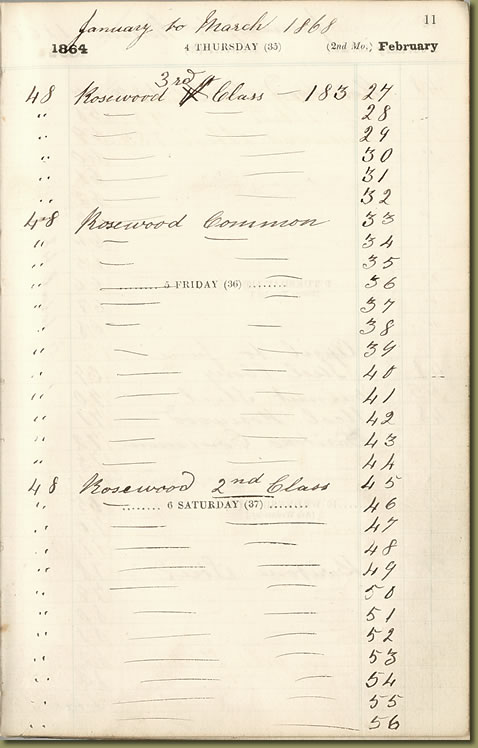 January to March 1868
11
1864 4 THURSDAY (35) (2nd Mo.) February
3rd
48 Rosewood Class — 183 27
" — — 28
" — — 29
" — — 30
" — — 31
" — — 32
48 Rosewood Common 33
" — — 34
" — — 35
" 5 FRIDAY (36) — 36
" — — 37
" — — 38
" — — 39
" — — 40
" — — 41
" — — 42
" — — 43
" — — 44
48 Rosewood 2nd Class 45
" — 6 SATURDAY (37) 46
" — — 47
" — — 48
" — — 49
" — — 50
" — — 51
" — — 52
" — — 53
" — — 54
" — — 55
" — — 56